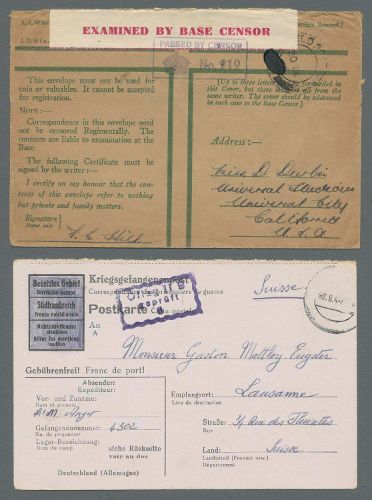 EXAMINED BY BASE CENSOR
PASSED BY CENSOR
No. 919
This envelope must not be used for
coin or valuables. It cannot be accepted
for registration.
NOTE:—
Correspondence in this envelope need
not be censored Regimentally. The
contents are liable to examination at the
Base.
The following Certificate must be
signed by the writer:—
I certify on my honour that the con-
tents of this envelope refer to nothing
but private and family matters.
Signature
Name only
[Up to three letters
this Cover, but
same writer. The cover should be addressed
in such case to the Base Censor.]
Address:—
Miss. D. Durbin
Universal Studios
Universal City
California
U.S.A
Kriegsgefangenenpost
Correspondance des prisonniers de guerre
Postkarte
An
A
Besetztes Gebiet
Territoire occupé
Südfrankreich
France méridionale
Nichtzutreffendes
streichen
Biffer les mentions
inutiles
Oflag
geprüft
Suisse
Gebührenfrei! Franc de port!
Absender:
Expéditeur:
Vor- und Zuname:
Nom et prénom
Gefangenennummer: 4302
No. du prisonnier
Lager-Bezeichnung:
Nom du camp
siehe Rückseite
voir au dos
Deutschland (Allemagne)
Monsieur Gaston
Empfangsort: Lausanne
Lieu de destination
Straße:
Rue
Land: Suisse
Landesteil (Provinz usw.)
Département